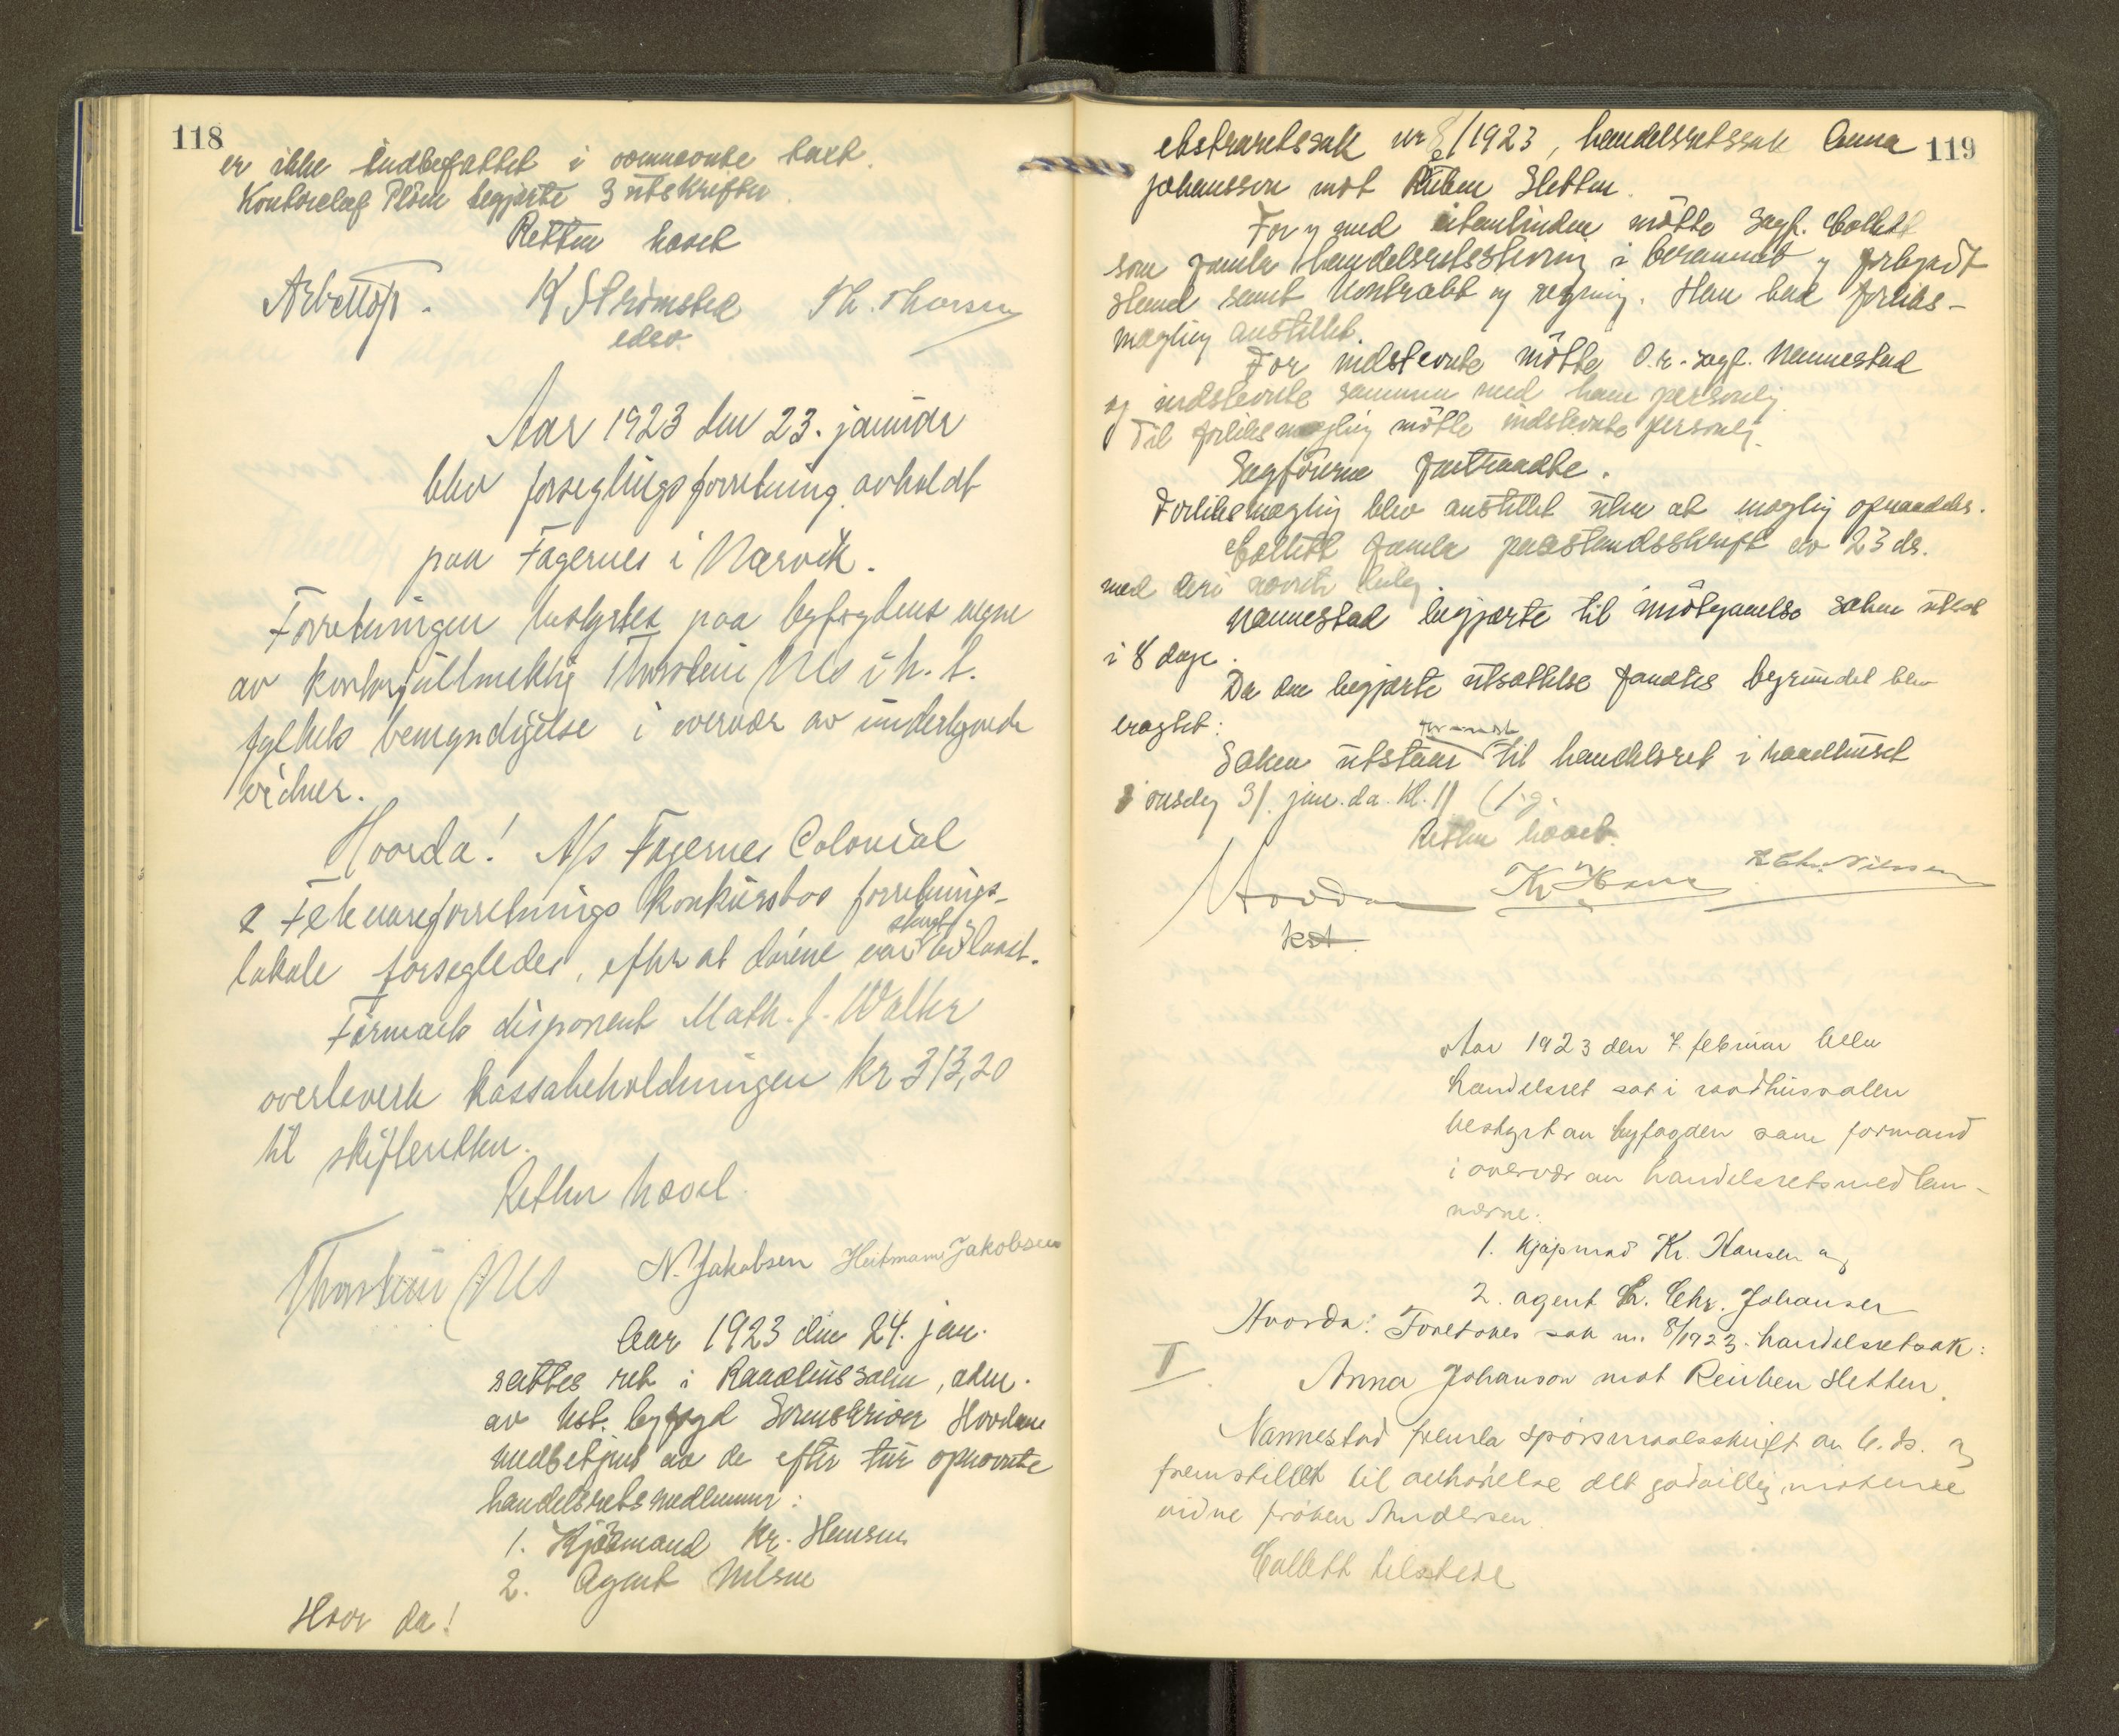 118
er ikke indbefattet i ovennævnte takt.
Kontorchef Olsen begjærte 3 utskrifter.
Retten hævet
K Strømsted Th. Thorsen
edsv.
Aar 1923 den 23. januar
blev forseglingsforretning avholdt
paa Fagernes i Narvik.
Forretningen bestyrtes paa byfogdens vegne
av kontorfuldmektig Thorstein Nes i h. t.
fylkets bemyndigelse i overvær av undertegnede
vidner.
Hvorda! A/s Fagernes Colonial
& Fetevareforretnings konkursbos forretnings-
lokale forsegledes, efter at dørene var stengt og avlaast.
Firmaets disponent Math. J. Walter
overleverte kassabeholdningen kr 313,20
til skifteretten.
Retten hævet.
Thorstein Nes N. Jakobsen Heitmann Jakobsen
Aar 1923 den 24. jan.
sattes ret i Raadhussalen, adm.
av kst. byfogd Sorenskriver Hovdan
medbetjent av de efter tur opnævnte
handelsretsmedlemmer:
1. Kjøbmand Kr. Hansen
2. Agent Nilsen
Hvor da!
119
ekstraretssak nr 8/1923, handelsretssak Anna
Johansson mot Ruben Sletten.
For og med citantinden møtte Sagf. Collett
som fremla handelsretsstevning i berammet og forkyndt
stand samt kontrakt og regning. Han bad forliks-
mægling anstillet.
For indstevnte møtte O.r.sagf. Nannestad
og indstevnte sammen med ham personlig.
Til forliksmægling møtte indstevnte personlig.
Sagførerne fratraadte.
Forliksmægling blev anstillet uten at mægling opnaaddes.
Collett fremla paastandsskrift av 23 ds.
med deri nævnte bilag.
Nannestad begjærte til imøtegaaelse saken utsat
i 8 dage.
Da den begjærte utsættelse fandtes begrundet blev
eragtet:
Saken utstaar til handelsret i raadhuset
onsdag 31. jan. d.a. kl. 11
Retten hævet.
Hovdan Kr Hansen R Chr. Nilssen
kst.
Aar 1923 den 7. februar blev
handelsret sat i raadhussalen
bestyrt av byfogden som formand
i overvær av handelsretsmedlem-
merne:
1. Kjøpmand Kr. Hansen og
2. agent Chr. Johansen
Hvorda: Foretokes sak nr. 8/1923. handelsretssak:
I. Anna Johanson mot Reuben Sletten.
Nannestad fremla spørsmaalsskrift av 6. ds. og
fremstillet til avhørelse det godvillig møtende
vidne frøken Andersen.
Collett tilstede